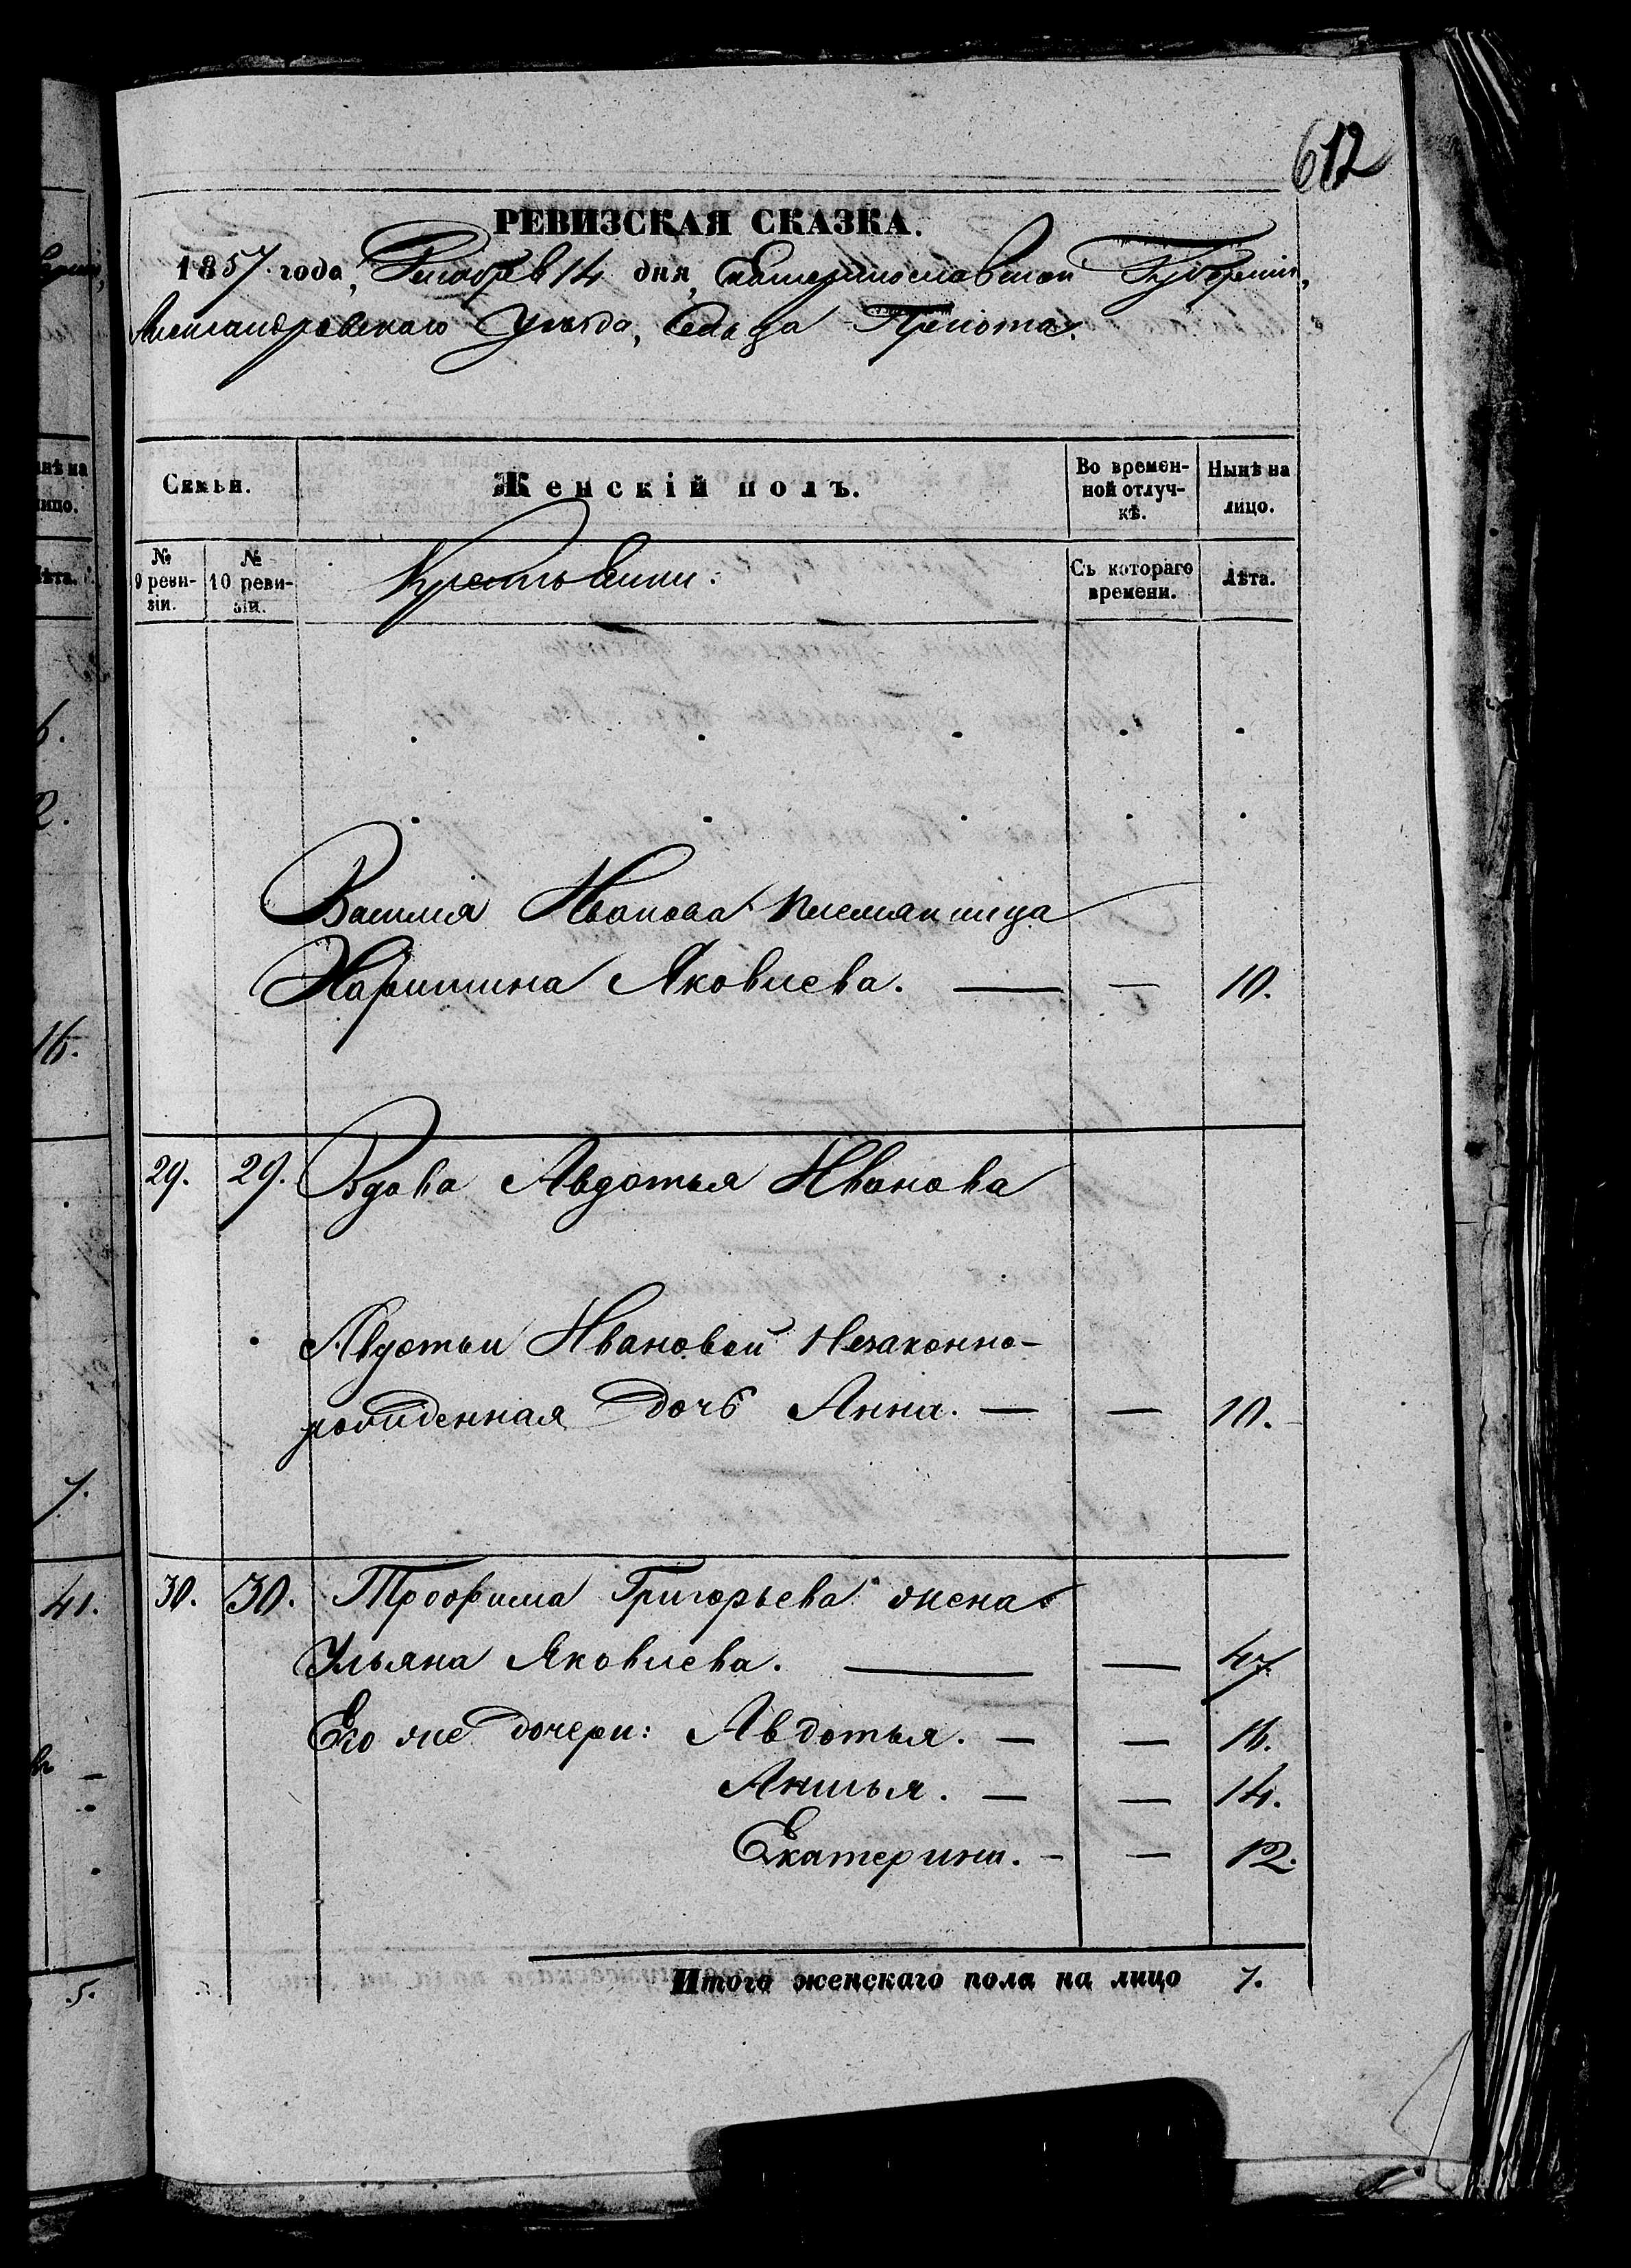 612
РЕВИЗСКАЯ СКАЗКА.
1857. года, 14 дня, Екатеринославской Губернии,
Александровского Уезда, Сельца
Семьи.
Женскій полъ.
Во времен-
ной отлуч-
кѣ.
Нынѣ на
лицо.
№
9 реви-
зіи.
№
10 реви-
зіи.
Съ котораго
времени.
Лѣта.
Василія Иванова племянница
Харитина Яковлева. — — 10.
29. 29. Вдова Авдотья Иванова
Авдотьи Ивановой Незаконно-
рожденная дочь Анна. — — 10.
30. 30. Трофима Григорьева жена
Ульяна Яковлева. — — 47.
Его же дочери: Авдотья. — — 16.
Анилья. — — 14.
Екатерина. — — 12.
Итого женскаго пола на лицо 7.